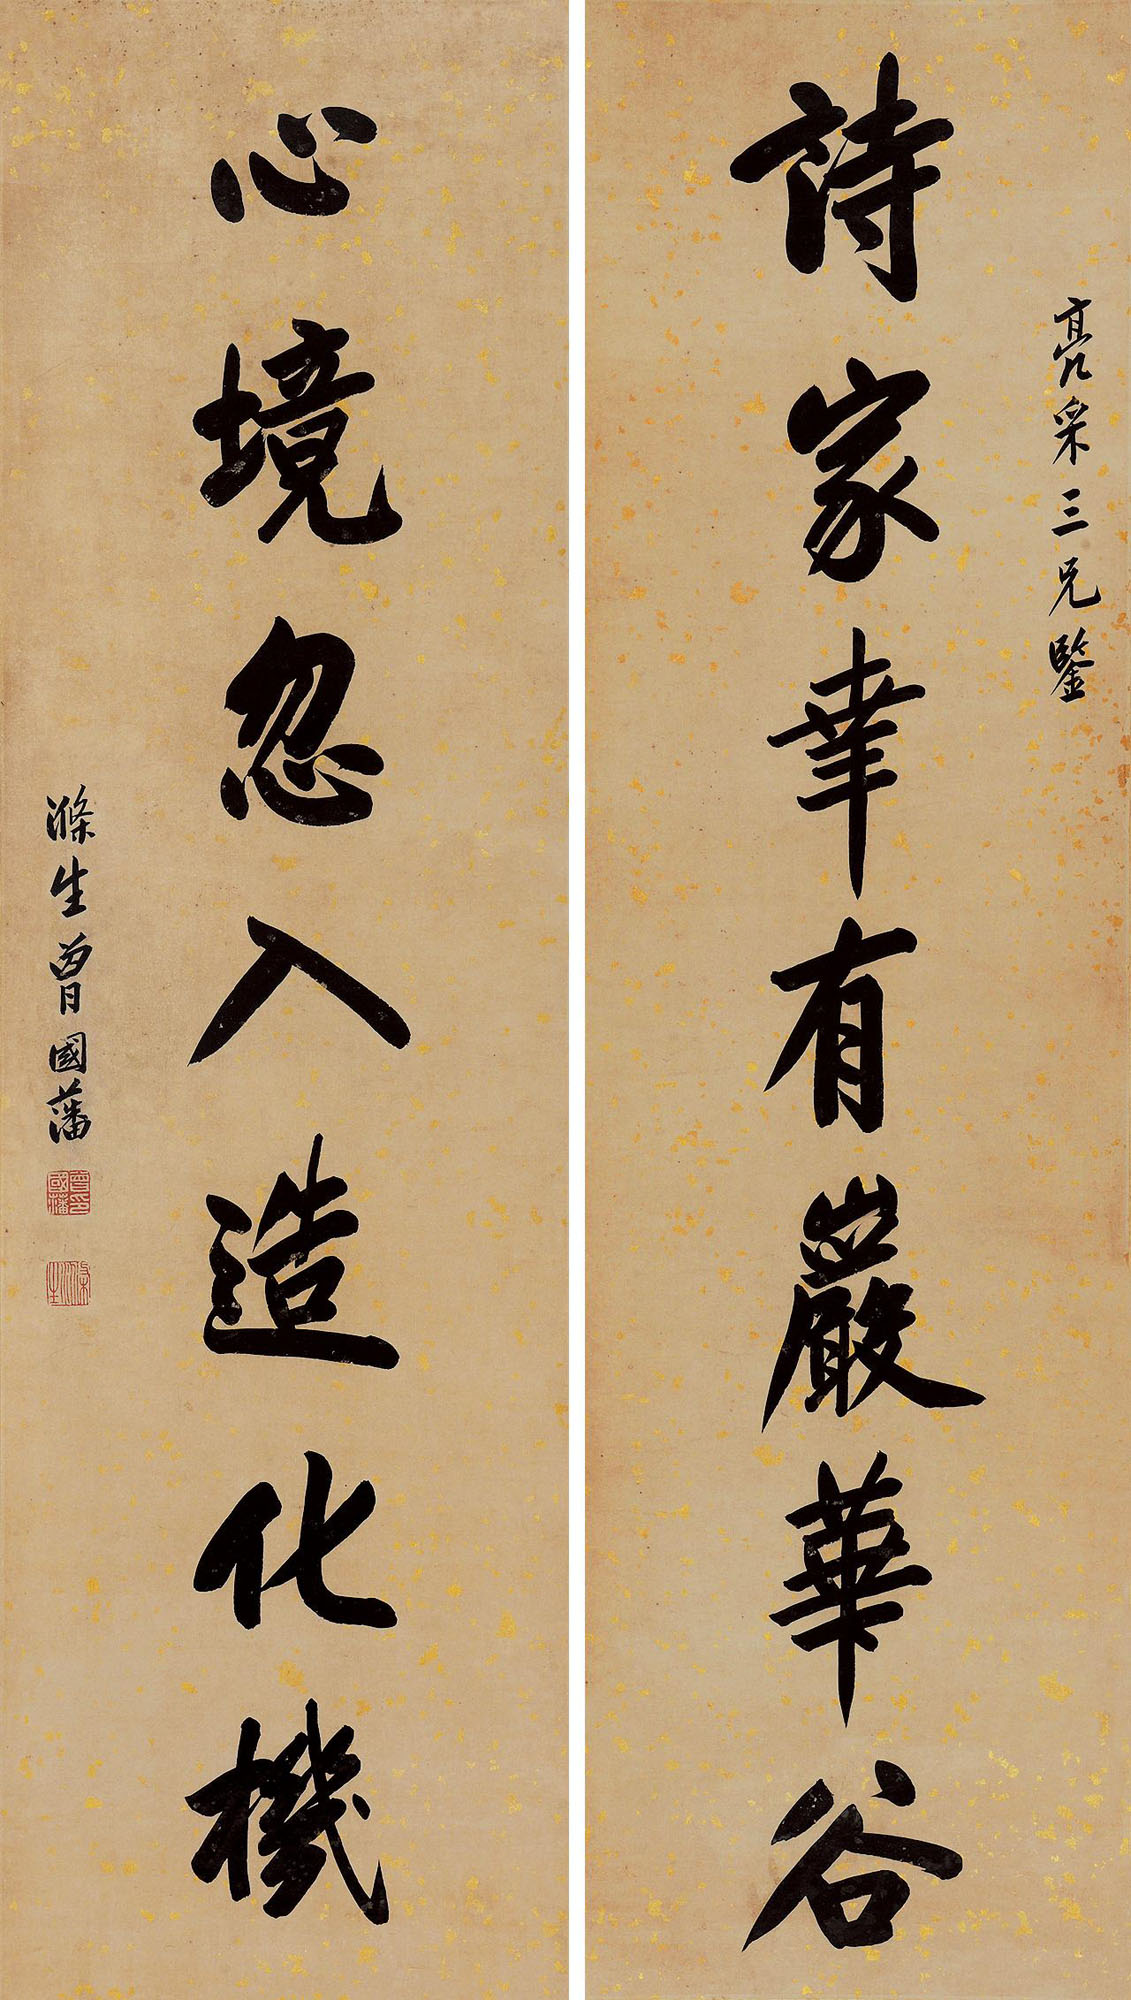 亮采三兄鑒
詩家幸有嚴華谷
心境忽入造化機
滌生曾國藩
曾印國藩
滌生